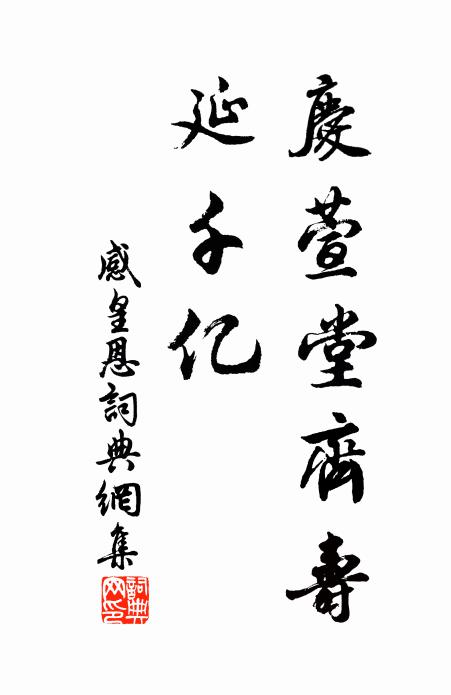 慶萱堂齊壽
延千亿
感皇恩詞典網集
詞典
网印